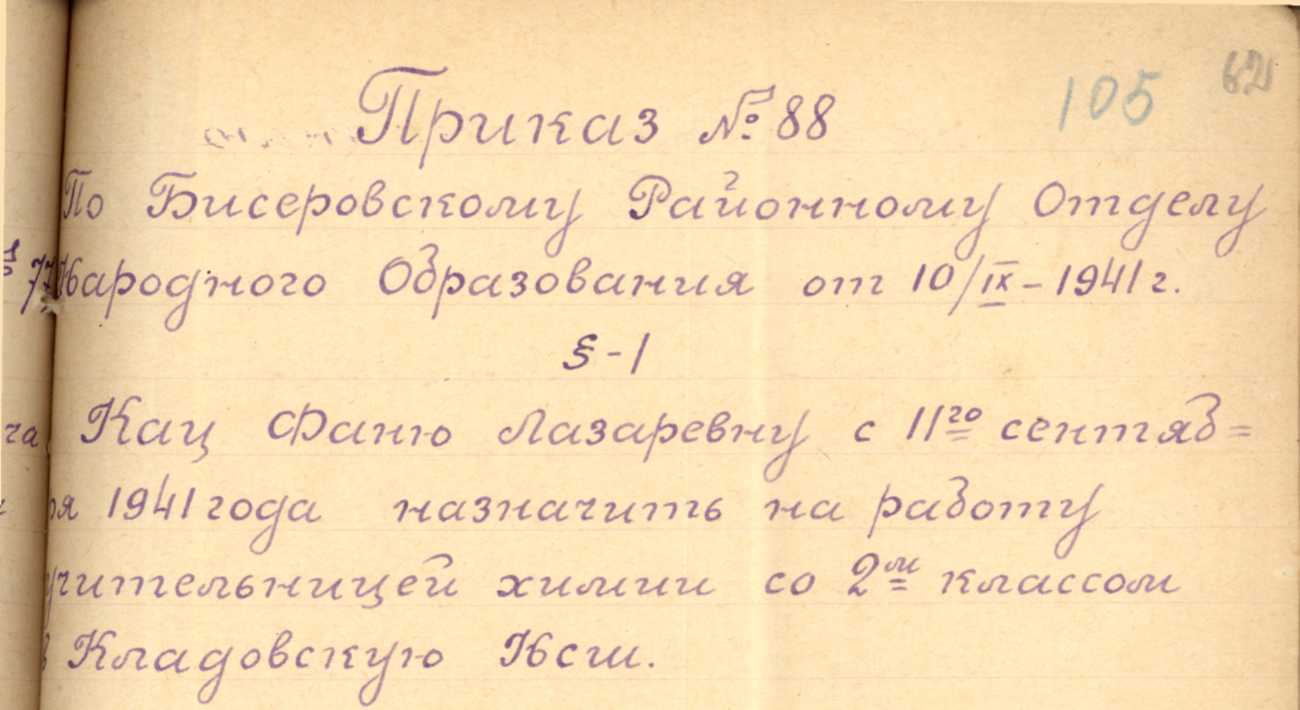 105 62
Приказ № 88
По Бисеровскому Районному Отделу
Народного Образования от 10/IX - 1941 г.
§ - 1
Кац Фаню Лазаревну с 11го сентяб=
ря 1941 года назначить на работу
учительницей химии со 2м классом
в Кладовскую Нсш.